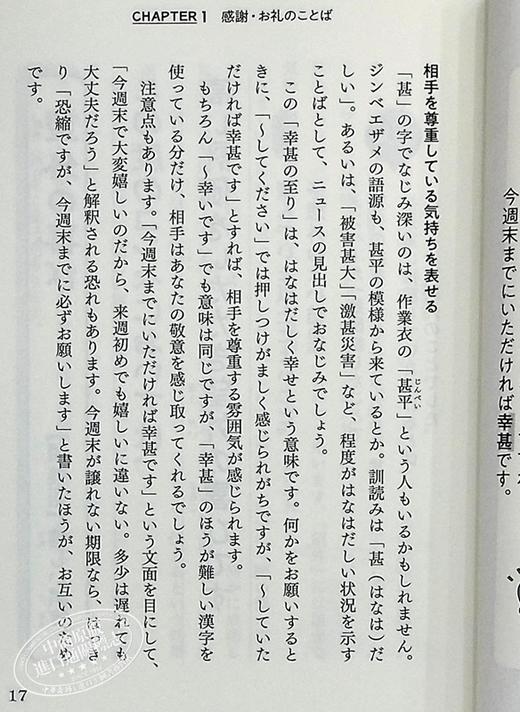 CHAPTER 1 感謝・お礼のことば
今週末までにいただければ幸甚です。
相手を尊重している気持ちを表せる
「甚」の字でなじみ深いのは、作業衣の「甚平」という人もいるかもしれません。
じんべい
ジンベエザメの語源も、甚平の模様から来ているとか。訓読みは「甚（はなは）だ
しい」。あるいは、「被害甚大」「激甚災害」など、程度がはなはだしい状況を示す
ことばとして、ニュースの見出しでおなじみでしょう。
この「幸甚の至り」は、はなはだしく幸せという意味です。何かをお願いすると
きに、「〜してください」では押しつけがましく感じられがちですが、「〜していた
だければ幸甚です」とすれば、相手を尊重する雰囲気が感じられます。
もちろん「〜幸いです」でも意味は同じですが、「幸甚」のほうが難しい漢字を
使っている分だけ、相手はあなたの敬意を感じ取ってくれるでしょう。
注意点もあります。「今週末までにいただければ幸甚です」という文面を目にして、
「今週末で大変嬉しいのだから、来週初めでも嬉しいに違いない。多少は遅れても
大丈夫だろう」と解釈される恐れもあります。今週末が譲れない期限なら、はっき
り「恐縮ですが、今週末までに必ずお願いします」と書いたほうが、お互いのため
です。
17